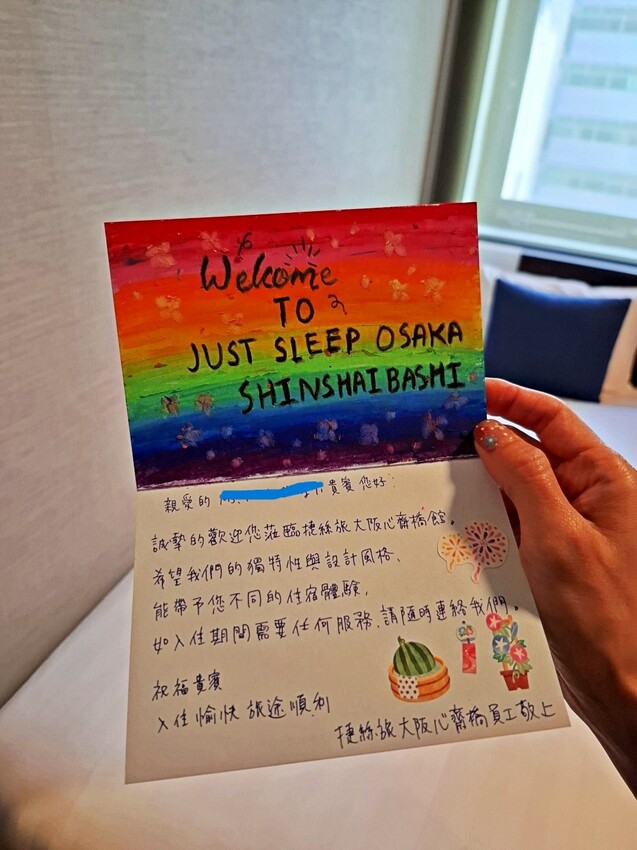 Welcome
TO
JUST SLEEP OSAKA
SHINSHAIBASHI
親愛的 貴賓您好：
誠摯的歡迎您蒞臨捷絲旅大阪心齋橋館。
希望我們的獨特性與設計風格、
能帶予您不同的住宿體驗，
如入住期間需要任何服務、請隨時連絡我們。
祝福貴賓
入住愉快 旅途順利
捷絲旅大阪心齋橋員工敬上